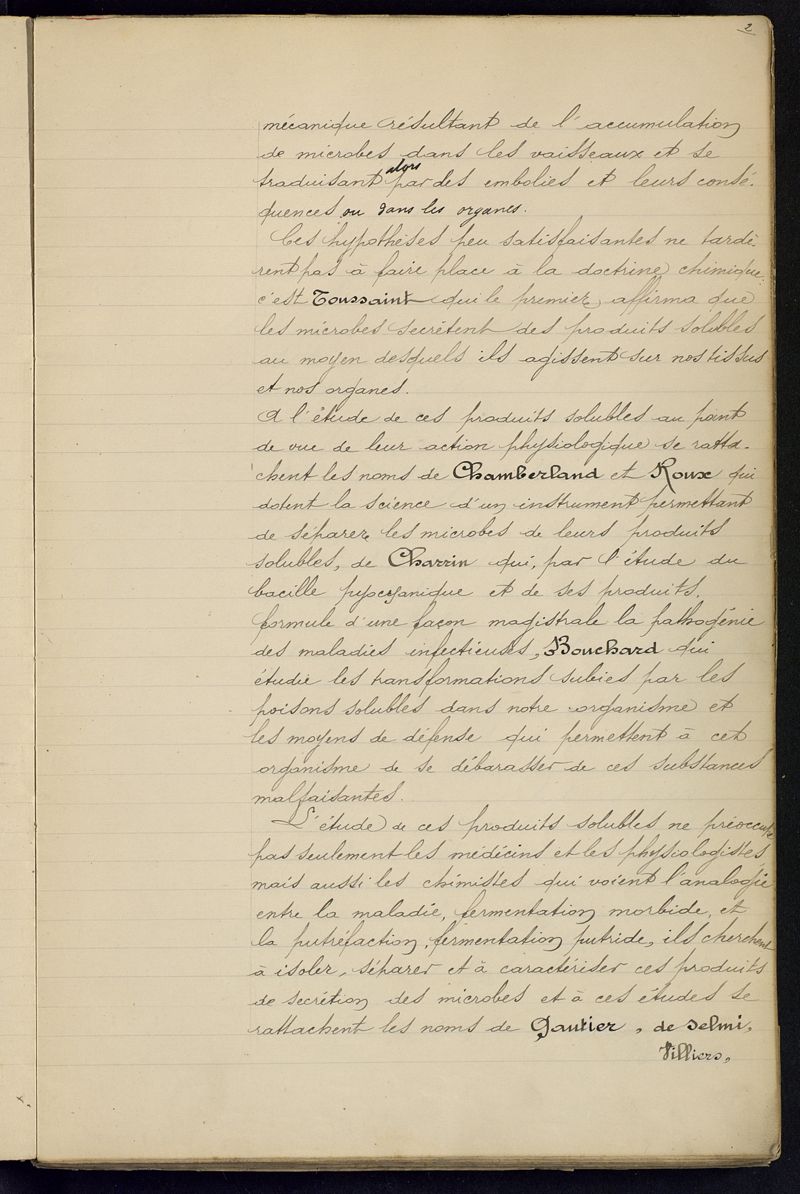 2
mécanique résultant de l'accumulation
de microbes dans les vaisseaux et se
traduisant alors par des embolies et leurs consé-
quences ou dans les organes.
Ces hypothèses peu satisfaisantes ne tardè-
rent pas à faire place à la doctrine chimique.
c'est Toussaint qui le premier, affirma que
les microbes secrètent des produits solubles
au moyen desquels ils agissent sur nos tissus
et nos organes.
A l'étude de ces produits solubles au point
de vue de leur action physiologique se ratta-
chent les noms de Chamberland et Roux qui
dotent la science d'un instrument permettant
de séparer les microbes de leurs produits
solubles, de Charrin qui, par l'étude du
bacille pyocyanique et de ses produits,
formule d'une façon magistrale la pathogénie
des maladies infectieuses, Bouchard qui
étudie les transformations subies par les
poisons solubles dans notre organisme et
les moyens de défense qui permettent à cet
organisme de se débarasser de ces substances
malfaisantes.
L'étude de ces produits solubles ne préoccupe
pas seulement les médecins et les physiologistes,
mais aussi les chimistes qui voient l'analogie
entre la maladie, fermentation morbide, et
la putréfaction, fermentation putride, ils cherchent
à isoler, séparer et à caractériser ces produits
de secrétion des microbes et à ces études se
rattachent les noms de Gautier, de Selmi,
Villiers,